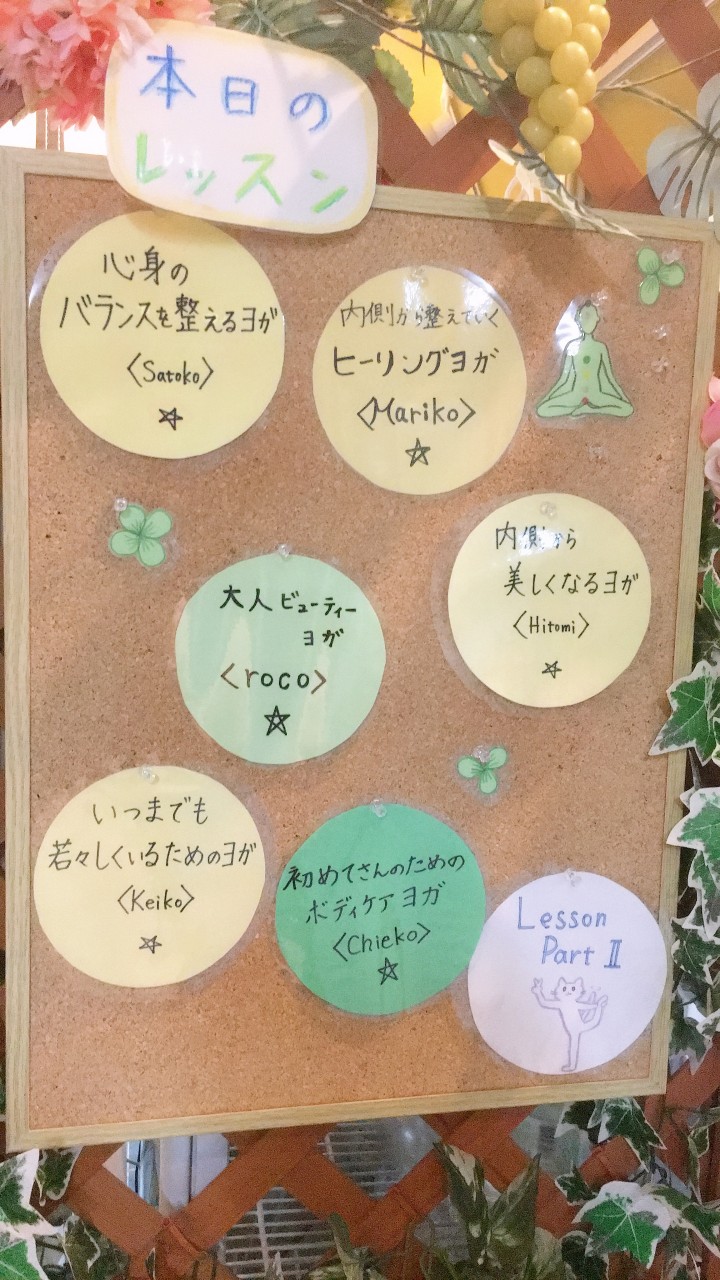 本日の
レッスン
心身の
バランスを整えるヨガ
〈Satoko〉
☆
内側から整えていく
ヒーリングヨガ
〈Mariko〉
☆
内側から
美しくなるヨガ
〈Hitomi〉
☆
大人ビューティー
ヨガ
〈roco〉
☆
いつまでも
若々しくいるためのヨガ
〈Keiko〉
☆
初めてさんのための
ボディケアヨガ
〈Chieko〉
☆
Lesson
Part Ⅱ